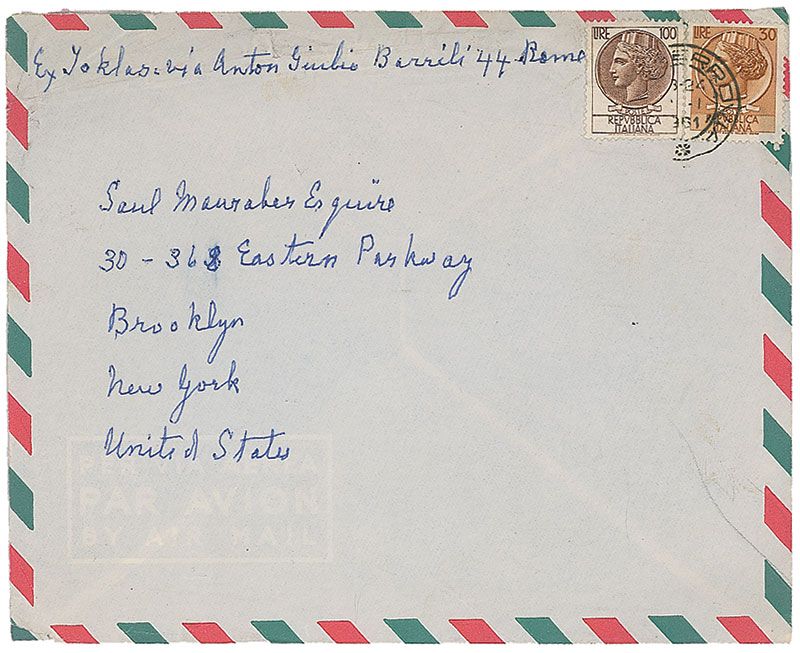 Ex Toklas. via Anton Giulio Barrili 44 Rome
LIRE 100
REPVBBLICA
ITALIANA
LIRE 30
REPVBBLICA
ITALIANA
Saul
Esquire
30 - 368 Eastern Parkway
Brooklyn
New York
United States
PAR AVION
BY AIR MAIL